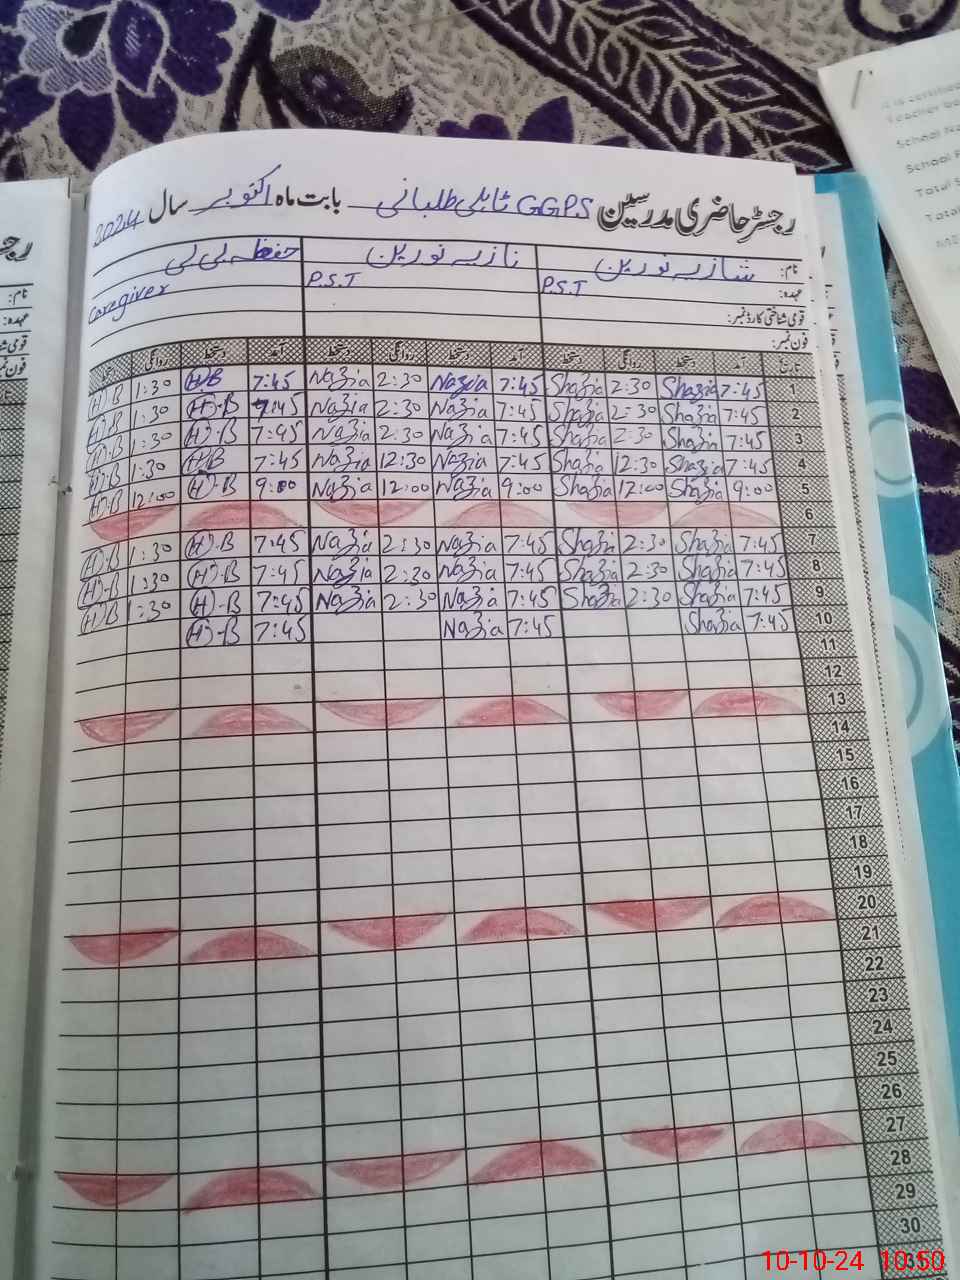 رجسٹر حاضری مدرسین G.G.P.S ٹاہلی طلبانی بابت ماہ اکتوبر سال 2024
نام: شازیہ نورین نازیہ نورین حفیظہ بی بی
عہدہ: P.S.T P.S.T Caregiver
قومی شناختی کارڈ نمبر:
فون نمبر:
تاریخ آمد دستخط روانگی دستخط آمد دستخط روانگی دستخط آمد دستخط روانگی دستخط
1 7:45 Shazia 2:30 Shazia 7:45 Nazia 2:30 Nazia 7:45 (H)B 1:30 (H).B
2 7:45 Shazia 2:30 Shazia 7:45 Nazia 2:30 Nazia 7:45 (H)-B 1:30 (H)-B
3 7:45 Shazia 2:30 Shazia 7:45 Nazia 2:30 Nazia 7:45 (H)-B 1:30 (H)-B
4 7:45 Shazia 12:30 Shazia 7:45 Nazia 12:30 Nazia 7:45 (H)B 1:30 (H)-B
5 9:00 Shazia 12:00 Shazia 9:00 Nazia 12:00 Nazia 9:00 (H)-B 12:00 (H)-B
6
7 7:45 Shazia 2:30 Shazia 7:45 Nazia 2:30 Nazia 7:45 (H)-B 1:30 (H)-B
8 7:45 Shazia 2:30 Shazia 7:45 Nazia 2:30 Nazia 7:45 (H)-B 1:30 (H)-B
9 7:45 Shazia 2:30 Shazia 7:45 Nazia 2:30 Nazia 7:45 (H)-B 1:30 (H)B
10 7:45 Shazia 7:45 Nazia 7:45 (H)-B
11
12
13
14
15
16
17
18
19
20
21
22
23
24
25
26
27
28
29
30
31
نام:
عہدہ:
School
School
Total
10-10-24 10:50